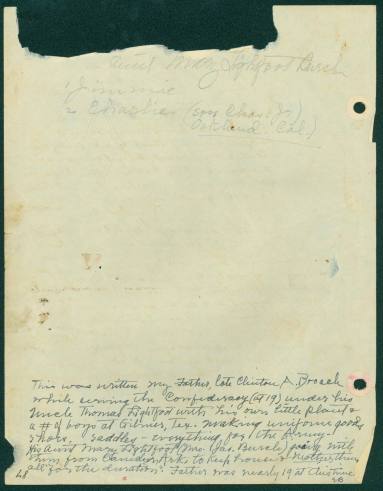 Aunt Mary Lightfoot Burch
1 Jimmie
2 Charlie (son Chas Jr.)
Oakland Cal)
This was written my Father, late Clinton A. Broach
while serving the Confederacy (at 19) under his
Uncle Thomas Lightfoot with his own little plant &
a # of boys at Gilmer, Tex. making uniforms goods,
shoes, saddles - everything for the Army.
His Aunt Mary Lightfoot (Mrs. Jas. Burch) with
them from Camden Ark. to keep house & Mother them
all for the duration. Father was nearly 19 at